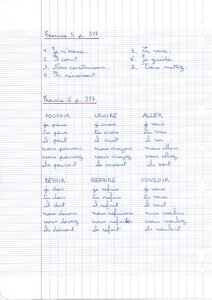 Exercice 5 p. 317
1. Je m'exerce. 5. Tu veux.
2. Il court. 6. Je guide.
3. Nous construisons. 7. Vous mettez.
4. Ils réussissent.
Exercice 6 p. 317
POUVOIR CROIRE ALLER
je peux je crois je vais
tu peux tu crois tu vas
il peut il croit il va
nous pouvons nous croyons nous allons
vous pouvez vous croyez vous allez
ils peuvent ils croient ils vont
DEVOIR REFAIRE VOULOIR
je dois je refais je veux
tu dois tu refais tu veux
il doit il refait il veut
nous devons nous refaisons nous voulons
vous devez vous refaites vous voulez
ils doivent ils refont ils veulent